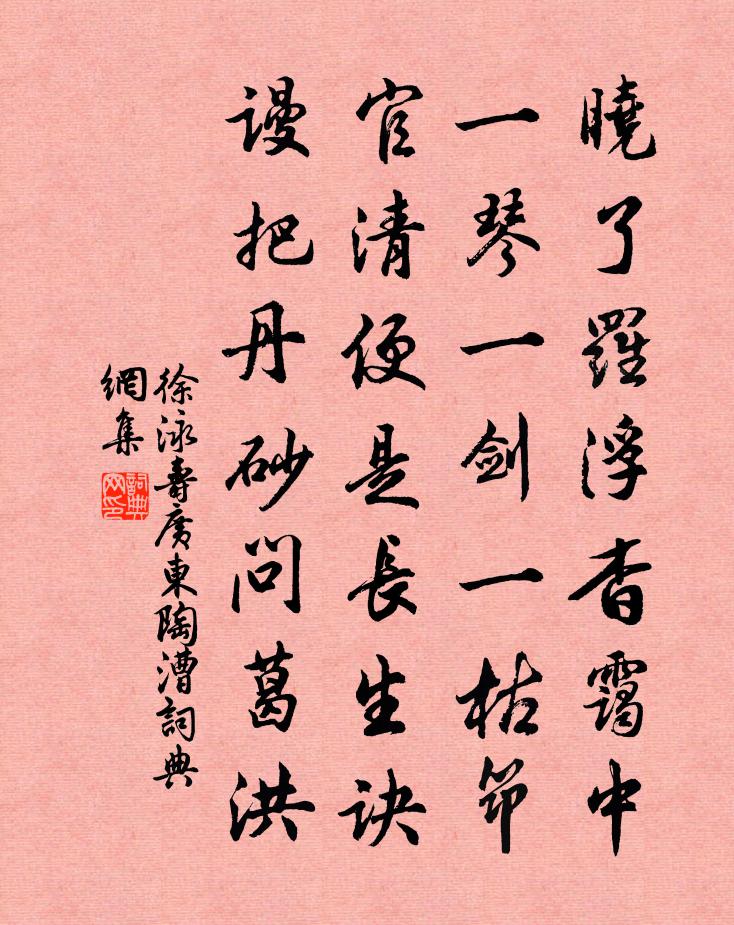 曉了羅浮杳靄中
一琴一劍一枯筇
官清便是長生訣
謾把丹砂問葛洪
徐泳壽廣東陶漕詞典
網集
詞典网印